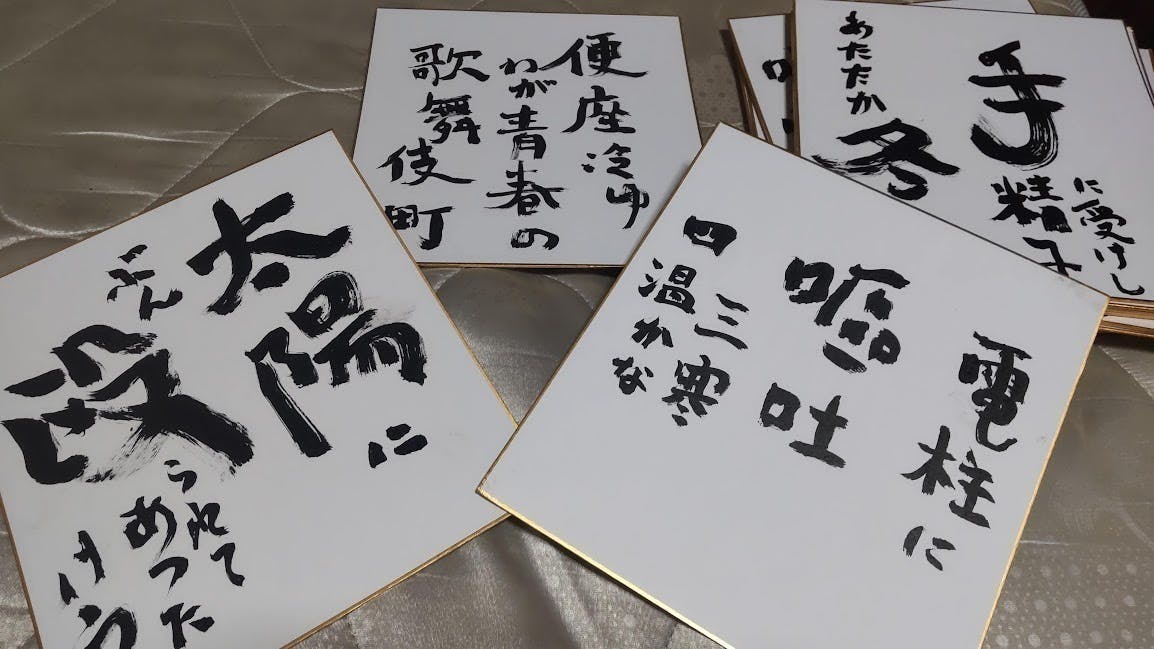 手
に受けし
精子
あたたか
冬
便座冷ゆ
わが青春の
歌舞伎町
電柱に
嘔吐
三寒
四温かな
太陽に
ぶん
殴
られて
あつた
けえ